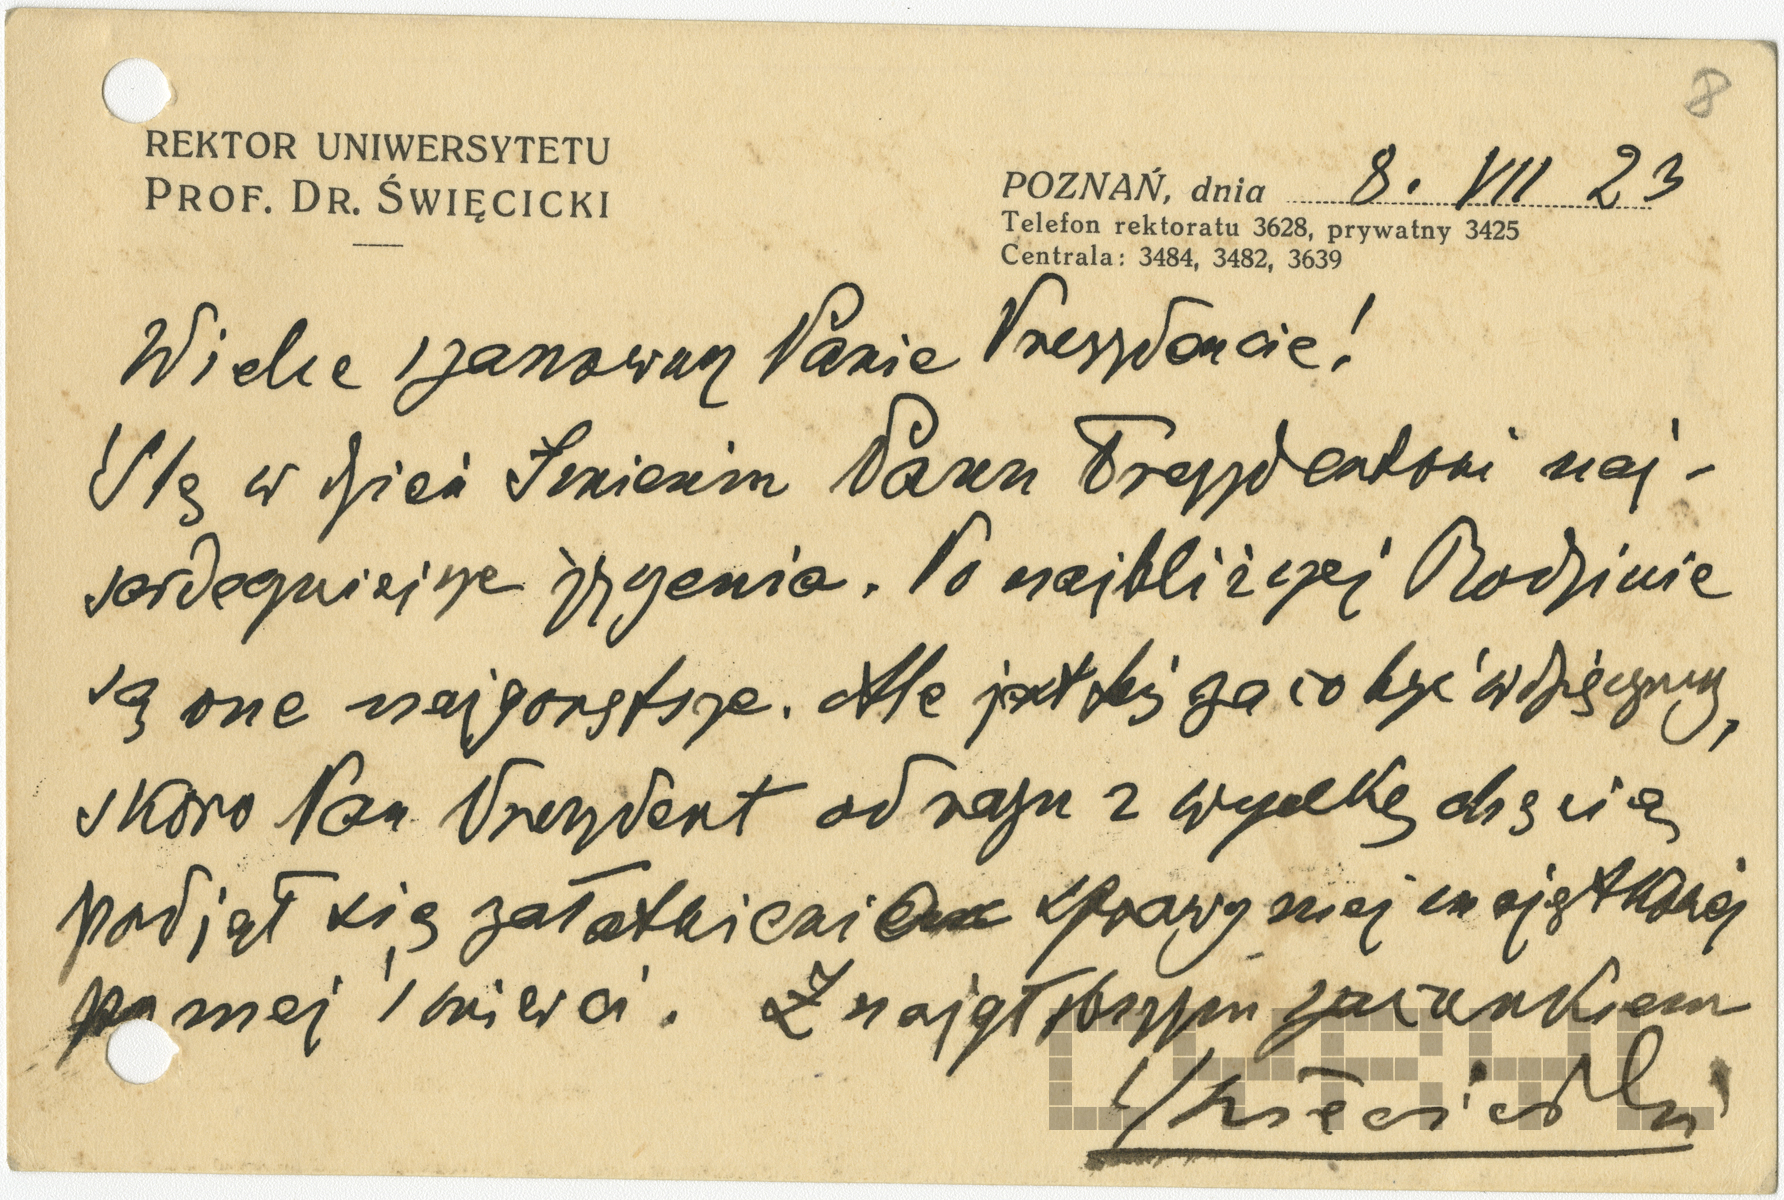 8
REKTOR UNIWERSYTETU
PROF. DR. ŚWIĘCICKI
POZNAŃ, dnia 8. VII 23
Telefon rektoratu 3628, prywatny 3425
Centrala: 3484, 3482, 3639
Wielce szanowny Panie Prezydencie!
Ślę w dzień Imienin Panu Prezydentowi naj-
serdeczniejsze życzenia. Po najbliższej Rodzinie
są one najgorętsze. Ale jest też za co być wdzięczny,
skoro Pan Prezydent od razu z wielką chęcią
podjął się załatwienia sprawy mej majątkowej
po mej śmierci. Z najgłębszym szacunkiem
Święcicki